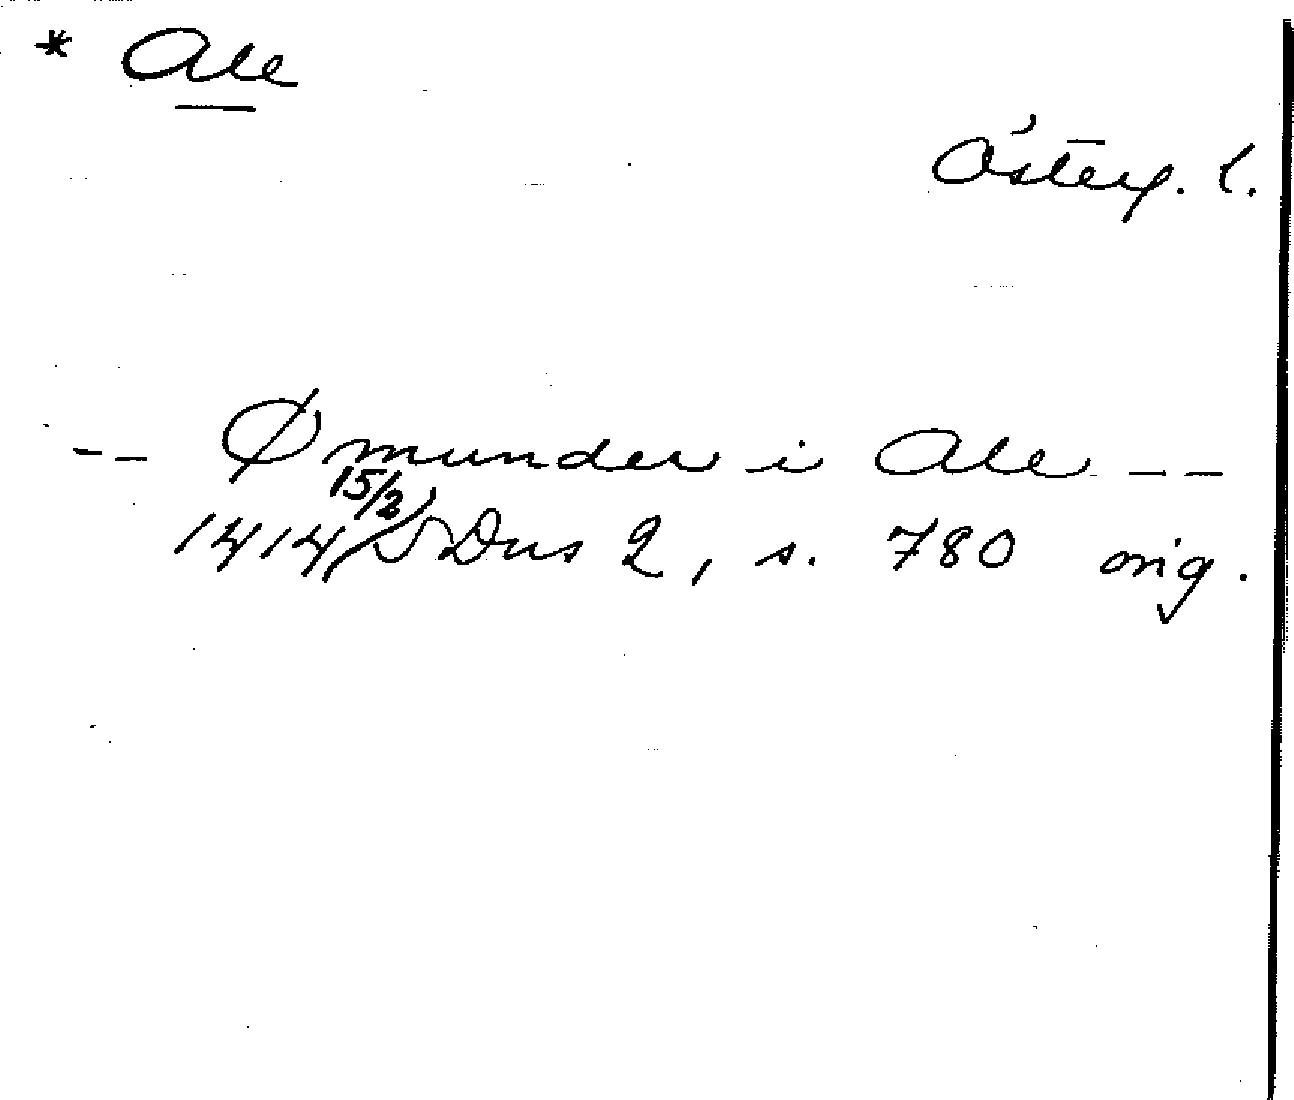 * Ale
Österg. l.
-- Ømunder i Ale --
1414 15/2 SDns 2, s. 780 orig.